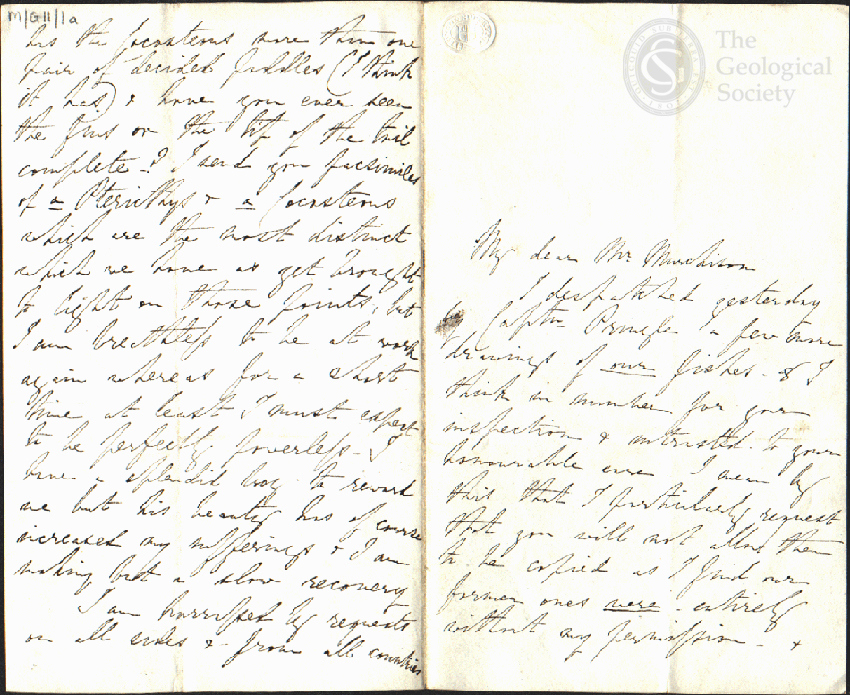 M/G11/1a
has the Cocosteus more than one
pair of decided paddles (I think
it has) & have you ever seen
the fins or the tip of the tail
complete? I send you facsimiles
of a Pterichthys & a Cocosteus
which are the most distinct
which we have as yet brought
to light on those points, but
I am breathless to be at work
again whereas for a short
time at least I must expect
to be perfectly powerless. I
have a splendid boy to reward
me but his beauty has of course
increased my sufferings & I am
making but a slow recovery
I am harrassed by requests
on all sides & from all countries
The
Geological
Society
My dear Mr. Murchison
I despatched yesterday
Captn Pringle a few more
drawings of our fishes - 8 I
think in number for your
inspection & intrusted to your
honourable care I mean by
this that I particularly request
that you will not allow them
to be copied as I find our
former ones were entirely
without my permission - &